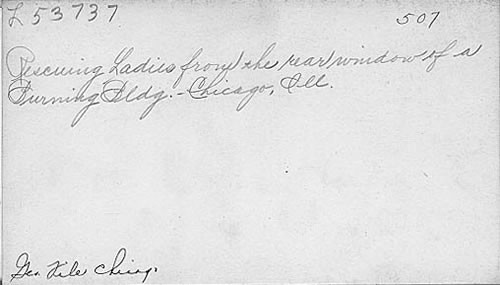 L 53737
507
Rescuing Ladies from the rear window of a
Burning Bldg. - Chicago, Ill.
Gen. File Chicago